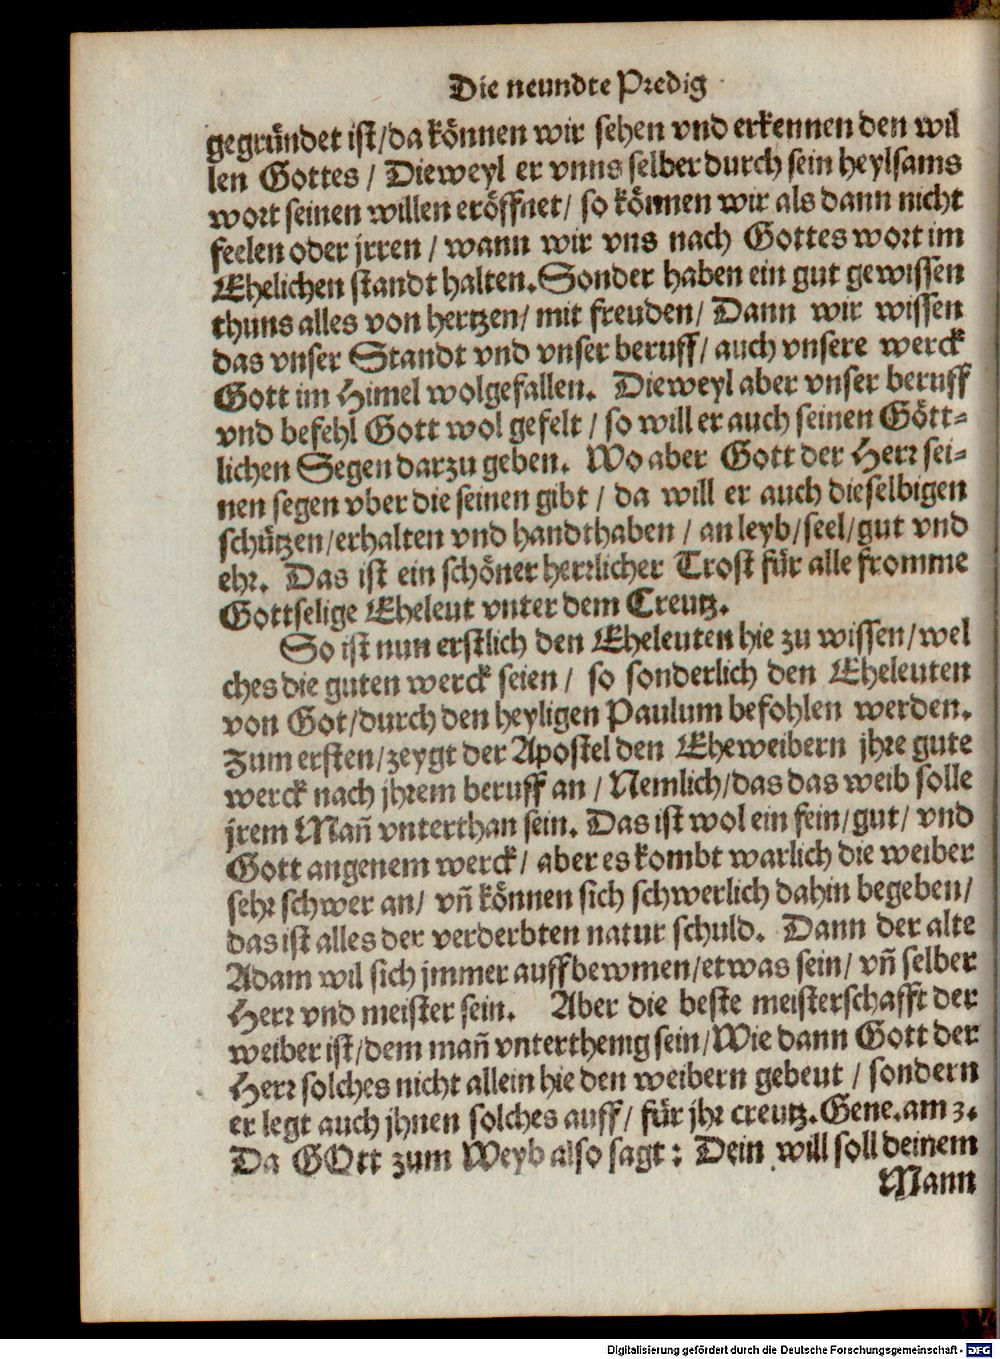 Die neundte Predig
gegründet ist/da können wir sehen vnd erkennen den wil
len Gottes / Dieweyl er vnns selber durch sein heylsams
wort seinen willen eröffnet/ so können wir als dann nicht
feelen oder jrren / wann wir vns nach Gottes wort im
Ehelichen standt halten. Sonder haben ein gut gewissen
thuns alles von hertzen/ mit freuden/ Dann wir wissen
das vnser Standt vnd vnser beruff/ auch vnsere werck
Gott im Himel wolgefallen. Dieweyl aber vnser beruff
vnd befehl Gott wol gefelt / so will er auch seinen Gött-
lichen Segen darzu geben. Wo aber Gott der Herr sei-
nen segen vber die seinen gibt / da will er auch dieselbigen
schützen/erhalten vnd handthaben / an leyb/seel/gut vnd
ehr. Das ist ein schöner herrlicher Trost für alle fromme
Gottselige Eheleut vnter dem Creutz.
So ist nun erstlich den Eheleuten hie zu wissen/wel
ches die guten werck seien / so sonderlich den Eheleuten
von Got/durch den heyligen Paulum befohlen werden.
Zum ersten/zeygt der Apostel den Eheweibern jhre gute
werck nach jhrem beruff an / Nemlich/das das weib solle
jrem Mañ vnterthan sein. Das ist wol ein fein/gut/ vnd
Gott angenem werck/ aber es kombt warlich die weiber
sehr schwer an/ vñ können sich schwerlich dahin begeben/
das ist alles der verderbten natur schuld. Dann der alte
Adam wil sich jmmer auffbewmen/etwas sein/ vñ selber
Herr vnd meister sein. Aber die beste meisterschafft der
weiber ist/dem mañ vnterthenig sein/Wie dann Gott der
Herr solches nicht allein hie den weibern gebeut / sondern
er legt auch jhnen solches auff/ für jhr creutz. Gene. am 3.
Da GOtt zum Weyb also sagt: Dein will soll deinem
Mann
Digitalisierung gefördert durch die Deutsche Forschungsgemeinschaft - DFG